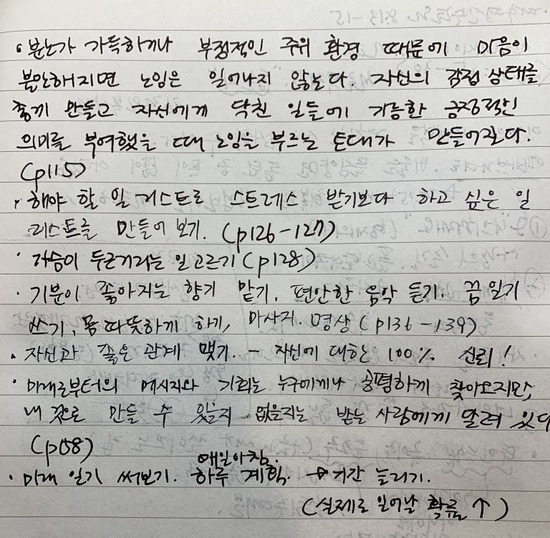 • 분노가 가득하거나 부정적인 주위 환경 때문에 마음이
불안해지면 노잉은 일어나지 않는다. 자신의 감정 상태를
좋게 만들고 자신에게 닥친 일들에 가능한 긍정적인
의미를 부여했을 때 노잉을 부르는 토대가 만들어진다.
(p115)
• 해야 할 일 리스트로 스트레스 받기보다 하고 싶은 일
리스트를 만들어 보기. (p126-127)
• 가슴이 두근거리는 일 고르기 (p128)
• 기분이 좋아지는 향기 맡기. 편안한 음악 듣기. 꿈 일기
쓰기, 몸 따뜻하게 하기, 마사지. 명상 (p136-139)
• 자신과 좋은 관계 맺기. - 자신에 대한 100% 신뢰!
• 미래로부터의 메시지와 기회는 누구에게나 공평하게 찾아오지만,
내 것으로 만들 수 있을지 없을지는 받는 사람에게 달려 있다
(p158)
매일아침.
• 미래 일기 써보기. 하루 계획. → 기간 늘리기.
(실제로 일어날 확률 ↑)